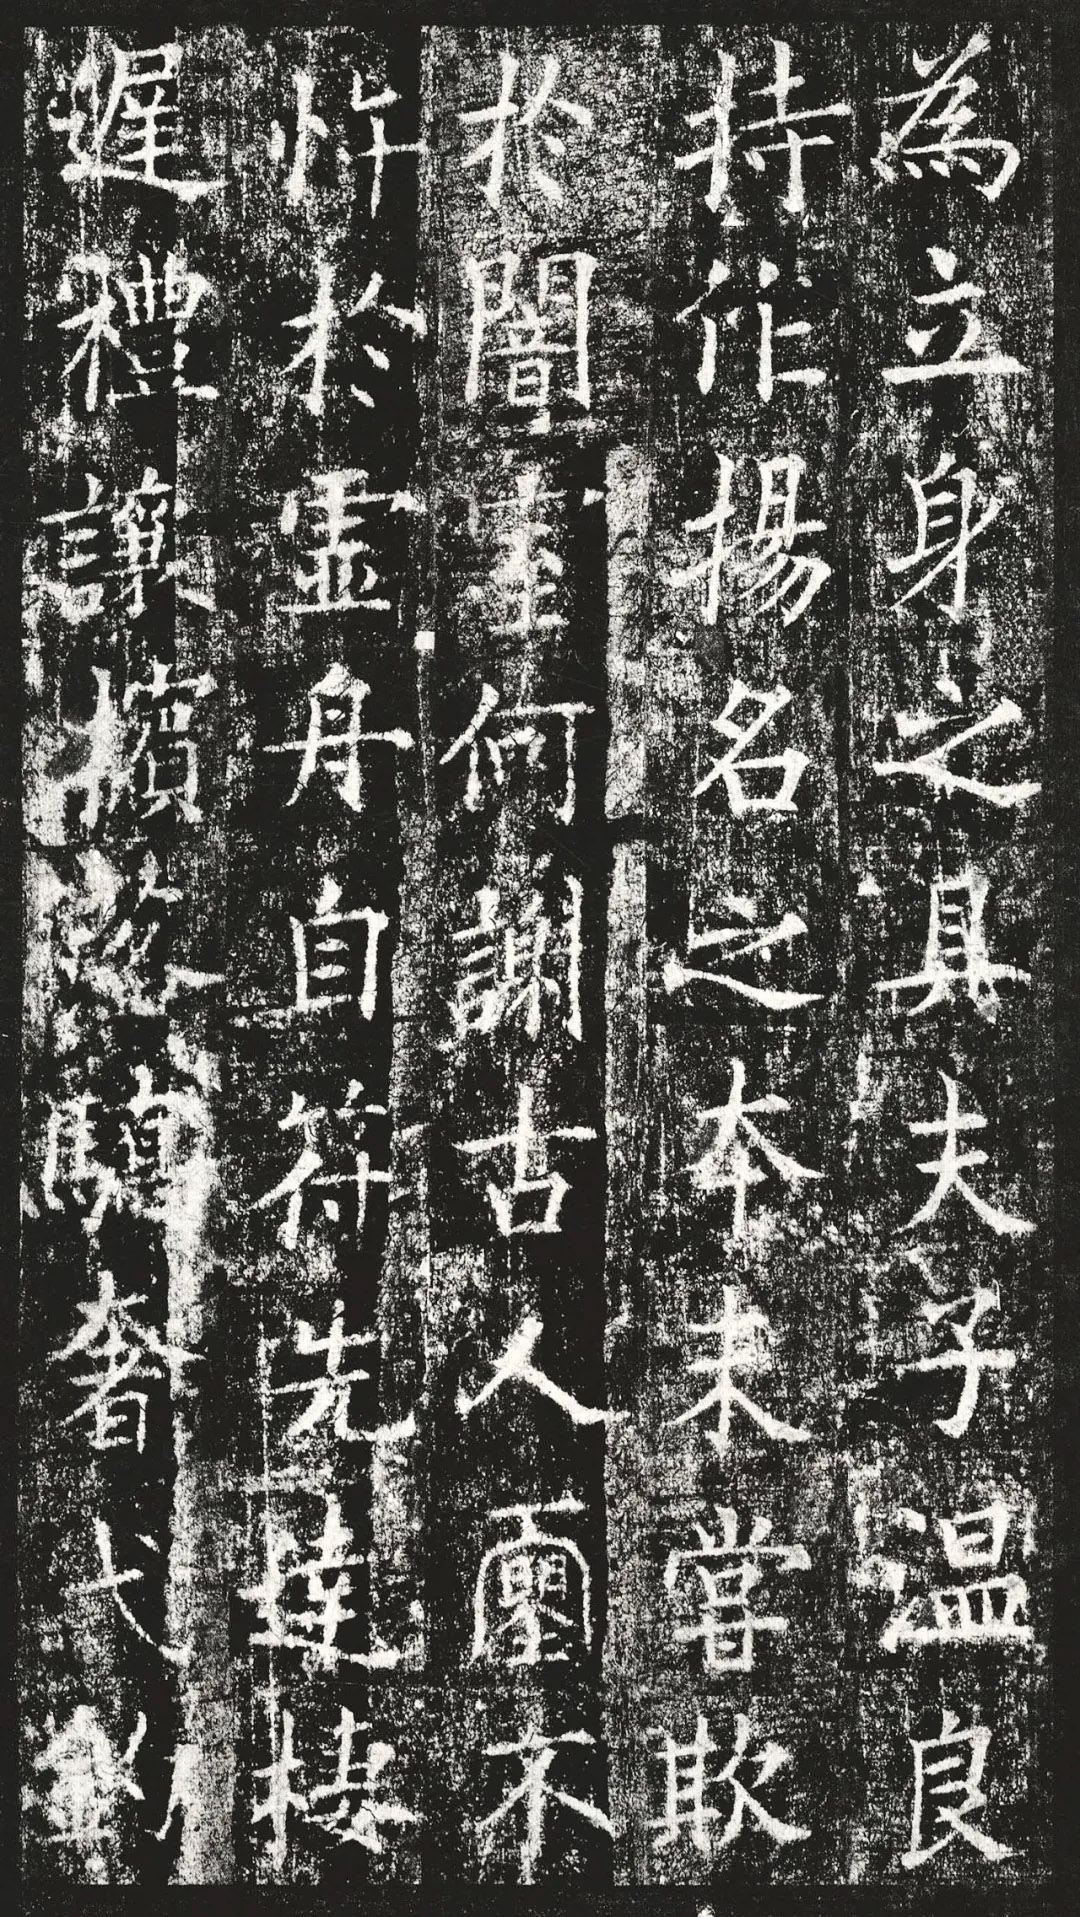 為立身之具夫子温良
持作揚名之本未嘗欺
於闇室何謝古人不
忤於虛舟自符先達棲
遲禮讓擯落驕奢弋